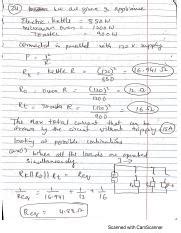 (24) we are given 3 Appliances
Electric Kettle = 850 W
Microwave oven = 1200 W
Toaster = 900 W
connected in parallel with 120 V supply
P =
R_K Kettle R = (120)² / 850 = 16.941 Ω
R_o = Oven R = (120)² / 1200 = 12 Ω
R_t = Toaster R = (120)² / 900 = 16 Ω
The Max total current that can be
drawn by the circuit without tripping 15A
looking at possible combinations
① when all the loads are operated
simultaneously
1/Req = 1/16.941 + 1/12 + 1/16
Req = 4.88 Ω
Scanned with CamScanner